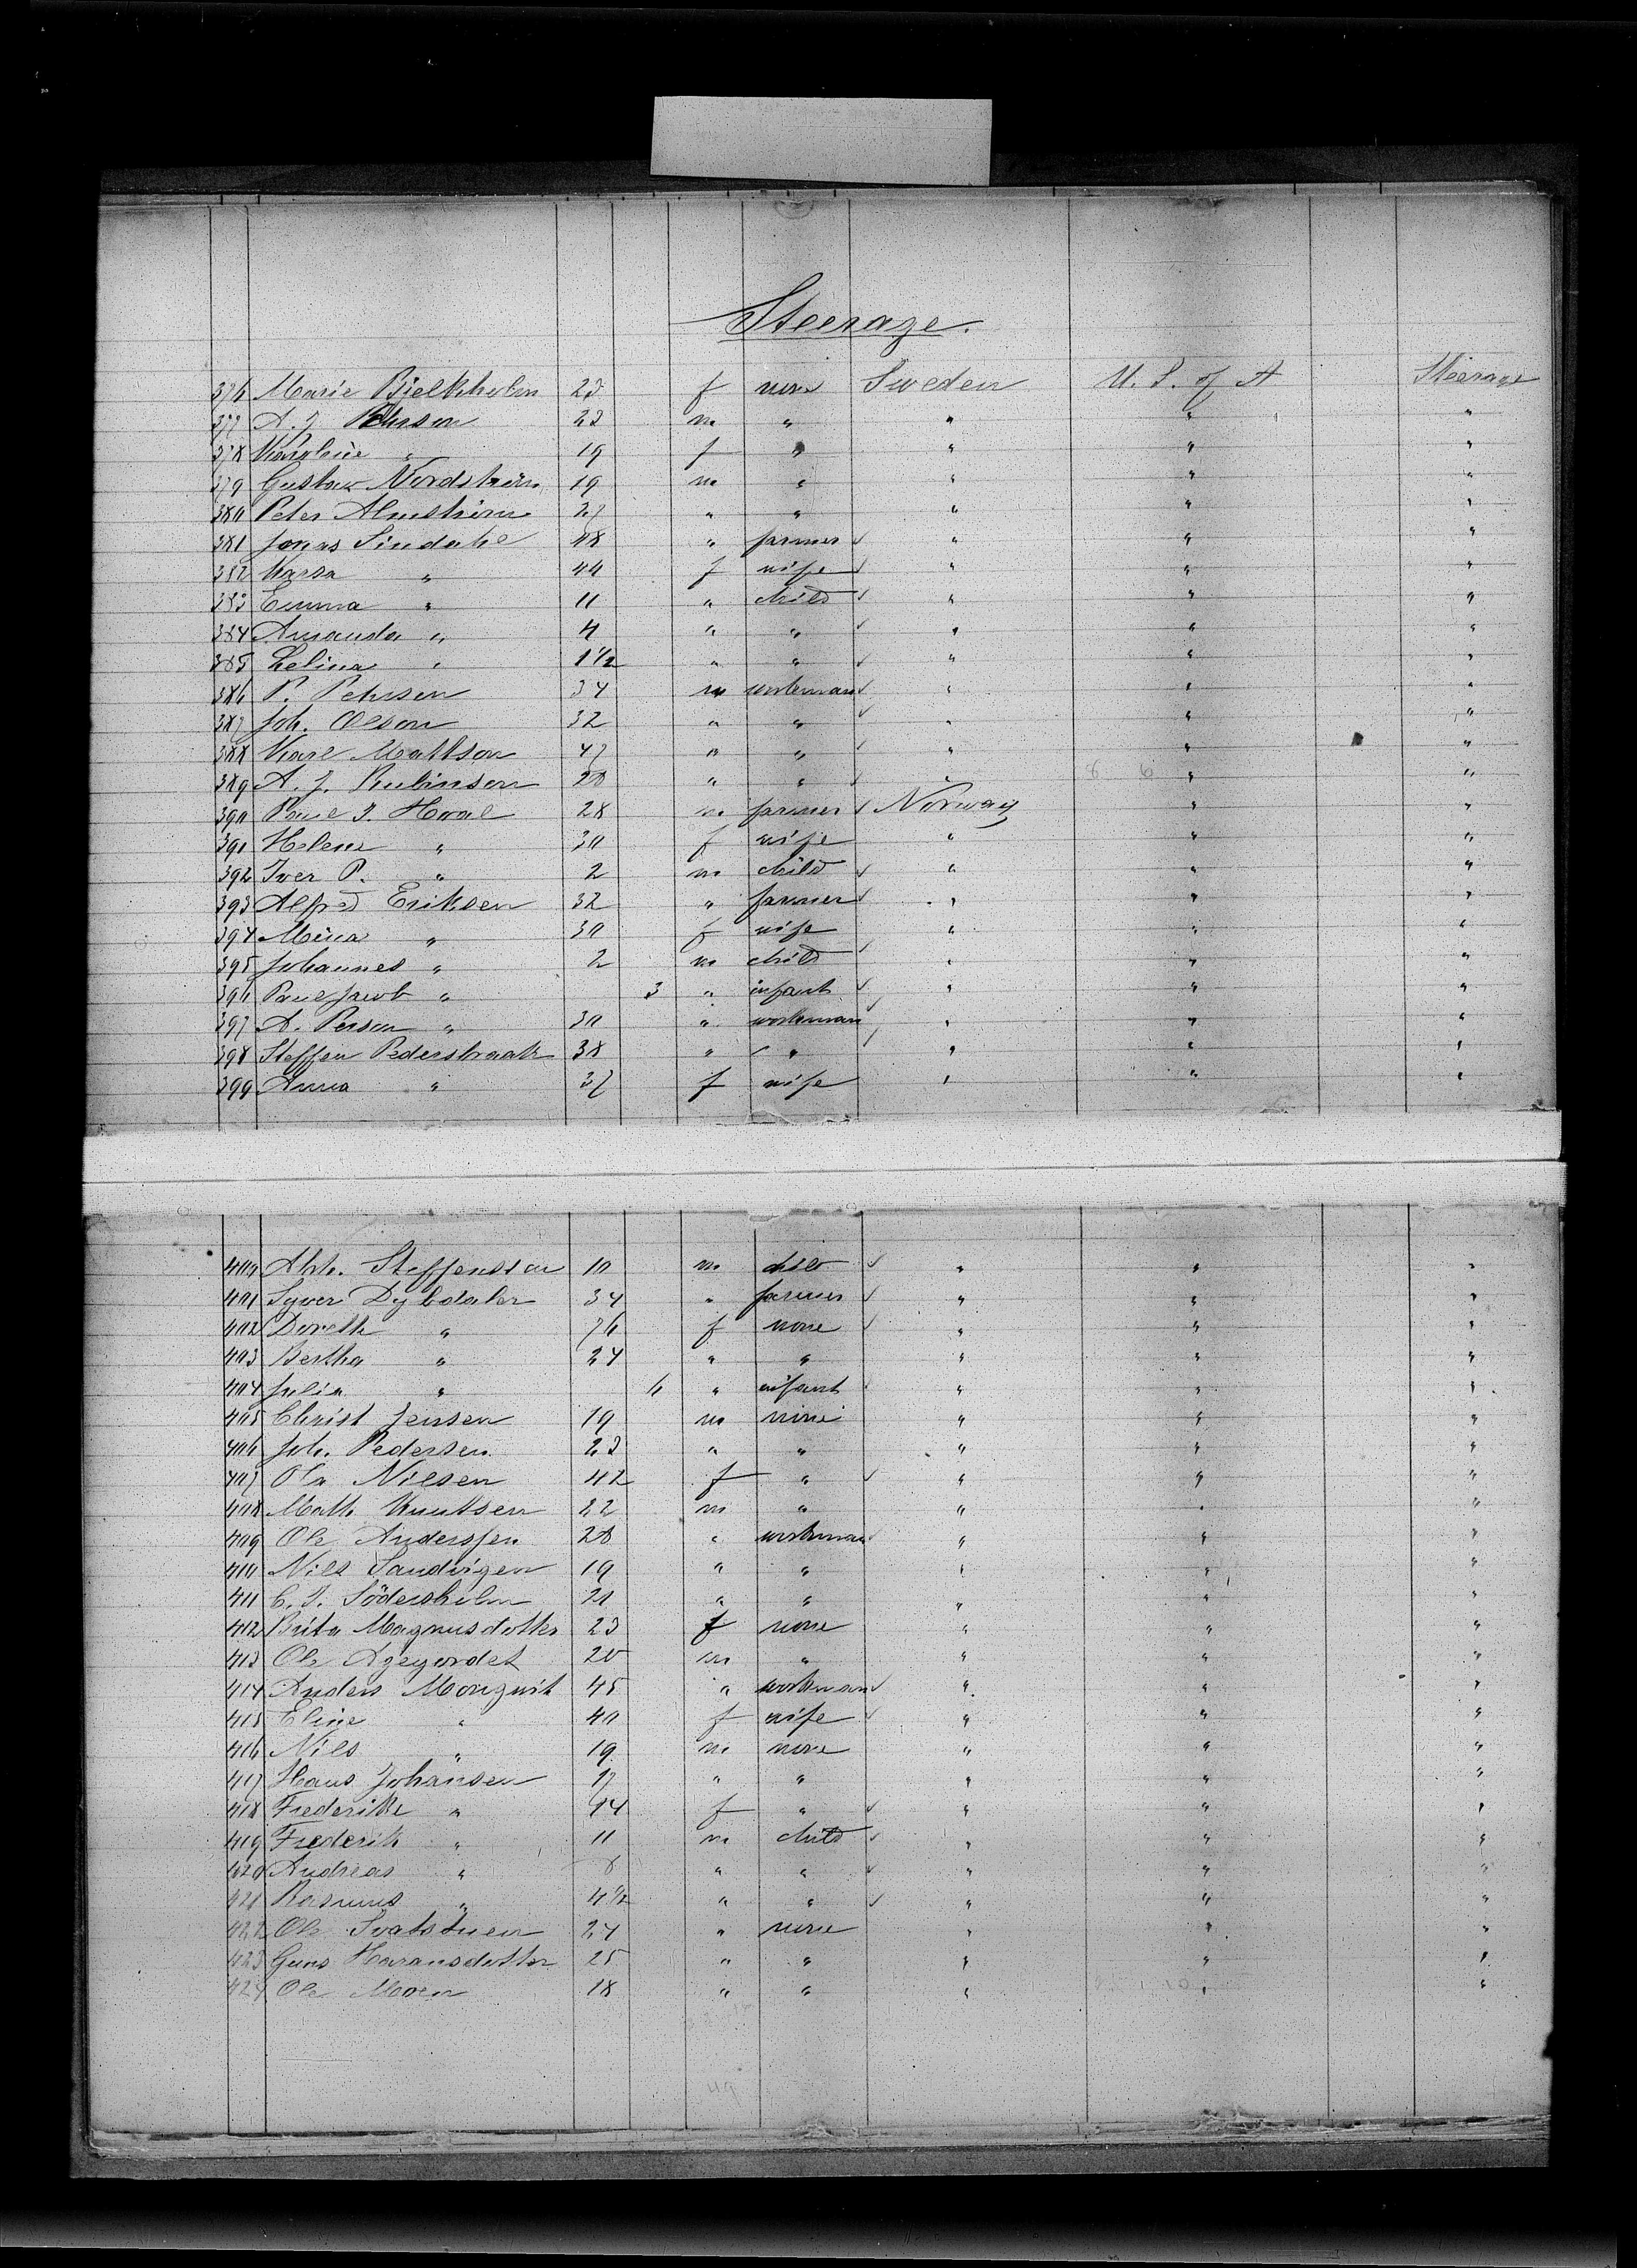 Steerage.
376 Marie Bjelkholm 23 f none Sweden U. S. of A Steerage
377 A. J. Pehrson 23 m " " " "
378 Karoline " 19 f " " " "
379 Gustav Nordström 19 m " " " "
380 Peter Almström 27 " " " " "
381 Jonas Lindahl 48 " farmer ✓ " " "
382 Karsa " 44 f wife ✓ " " "
383 Emma " 11 " child ✓ " " "
384 Amanda " 4 " " ✓ " " "
385 Selina " 1 1/2 " " ✓ " " "
386 P. Pehrson 34 m workman ✓ " " "
387 Joh. Olson 32 " " ✓ " " "
388 Karl Mattson 47 " " ✓ " " "
389 A. J. Rubinson 28 " " ✓ " " "
390 Paul I. Hoval 28 m farmer ✓ Norway " "
391 Helene " 30 f wife " " "
392 Iver P. " 2 m child ✓ " " "
393 Alfred Eriksen 32 " farmer ✓ " " "
394 Mina " 30 f wife " " "
395 Johannes " 2 m child ✓ " " "
396 Paul Jacob " 3 " infant ✓ " " "
397 A. Person " 30 " workman ✓ " " "
398 Steffen Pederstraak 38 " " ✓ " " "
399 Anna " 37 f wife " " "
400 Abh. Steffensson 10 m child ✓ " " "
401 Syver Dybdaler 34 " farmer ✓ " " "
402 Doreth " 76 f none ✓ " " "
403 Bertha " 24 " " " " "
404 Julia " 6 " infant " " "
405 Christ Jensen 19 m none " " "
406 Joh. Pedersen 23 " " " " "
407 Ola Nilsen 42 f " ✓ " " "
408 Math Knutsen 22 m " " " "
409 Ole Anderssen 28 " workman ✓ " " "
410 Nils Sandvigen 19 " " " " "
411 C. J. Södersholm 21 " " " " "
412 Brita Magnusdotter 23 f none " " "
413 Ole 20 m " " " "
414 Anders 45 " workman ✓ " " "
415 Eline " 40 f wife ✓ " " "
416 Nils " 19 m none " " "
417 Hans Johansen 17 " " " " "
418 Frederikke " 14 f " ✓ " " "
419 Frederik " 11 m child ✓ " " "
420 Andreas " 8 " " ✓ " " "
421 Rasmus " 4 1/2 " " ✓ " " "
422 Ole Svatstuen 24 " none " " "
423 Guns Haransdotter 25 " " " " "
424 Ole Moen 18 " " " " "
49